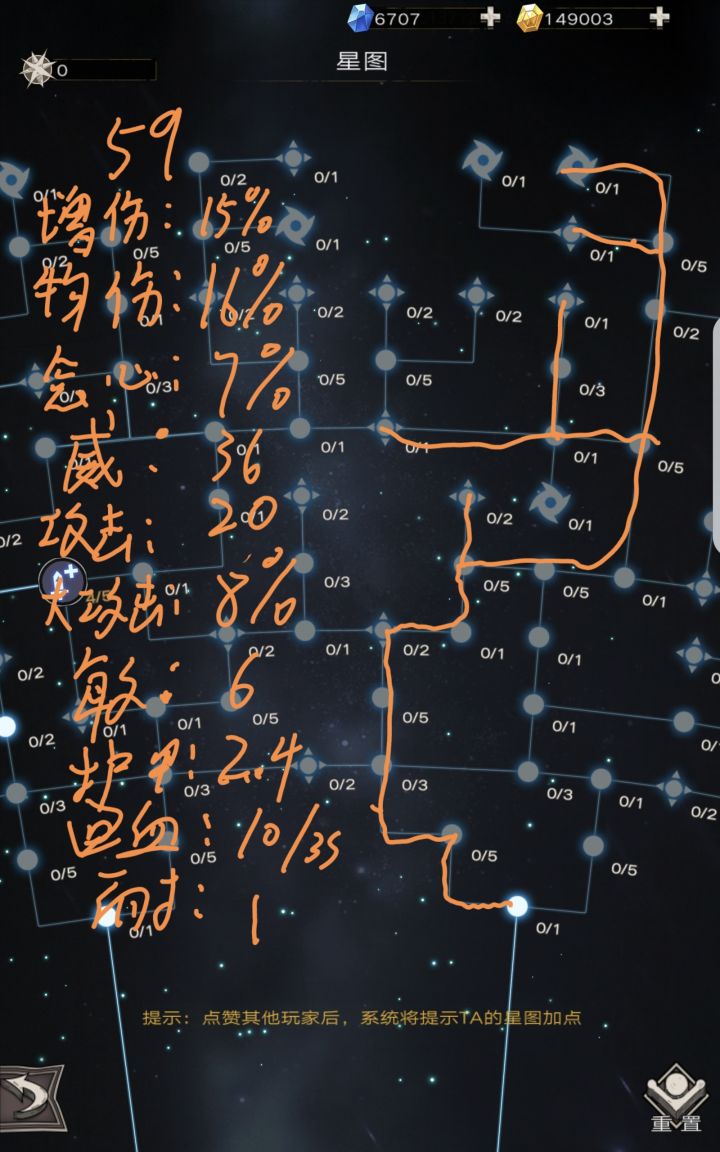 6707 149003
0
星图
59
0/2 0/1 0/1 0/1
0/1
增伤：15%
0/2 0/5 0/5 0/1 0/1 0/5
物伤：16%
0/1 0/2 0/2 0/2 0/2 0/1 0/2
会心：7%
0/1 0/3 0/5 0/5 0/3
威：36
0/1 0/1 0/1 0/5
攻击：20
0/2 0/1 0/2 0/2 0/1
大攻击：8%
4/5 0/1 0/3 0/5 0/5 0/1
敏：6
0/2 0/2 0/1 0/2 0/1 0/1
0/2 0/1 0/1 0/5 0/5 0/1
护甲：2.4
0/3 0/3 0/2 0/3 0/3 0/1 0/2
回血：10/35
0/5 0/5 0/5 0/5
耐：1
0/1 0/1
提示：点赞其他玩家后，系统将提示TA的星图加点
重置